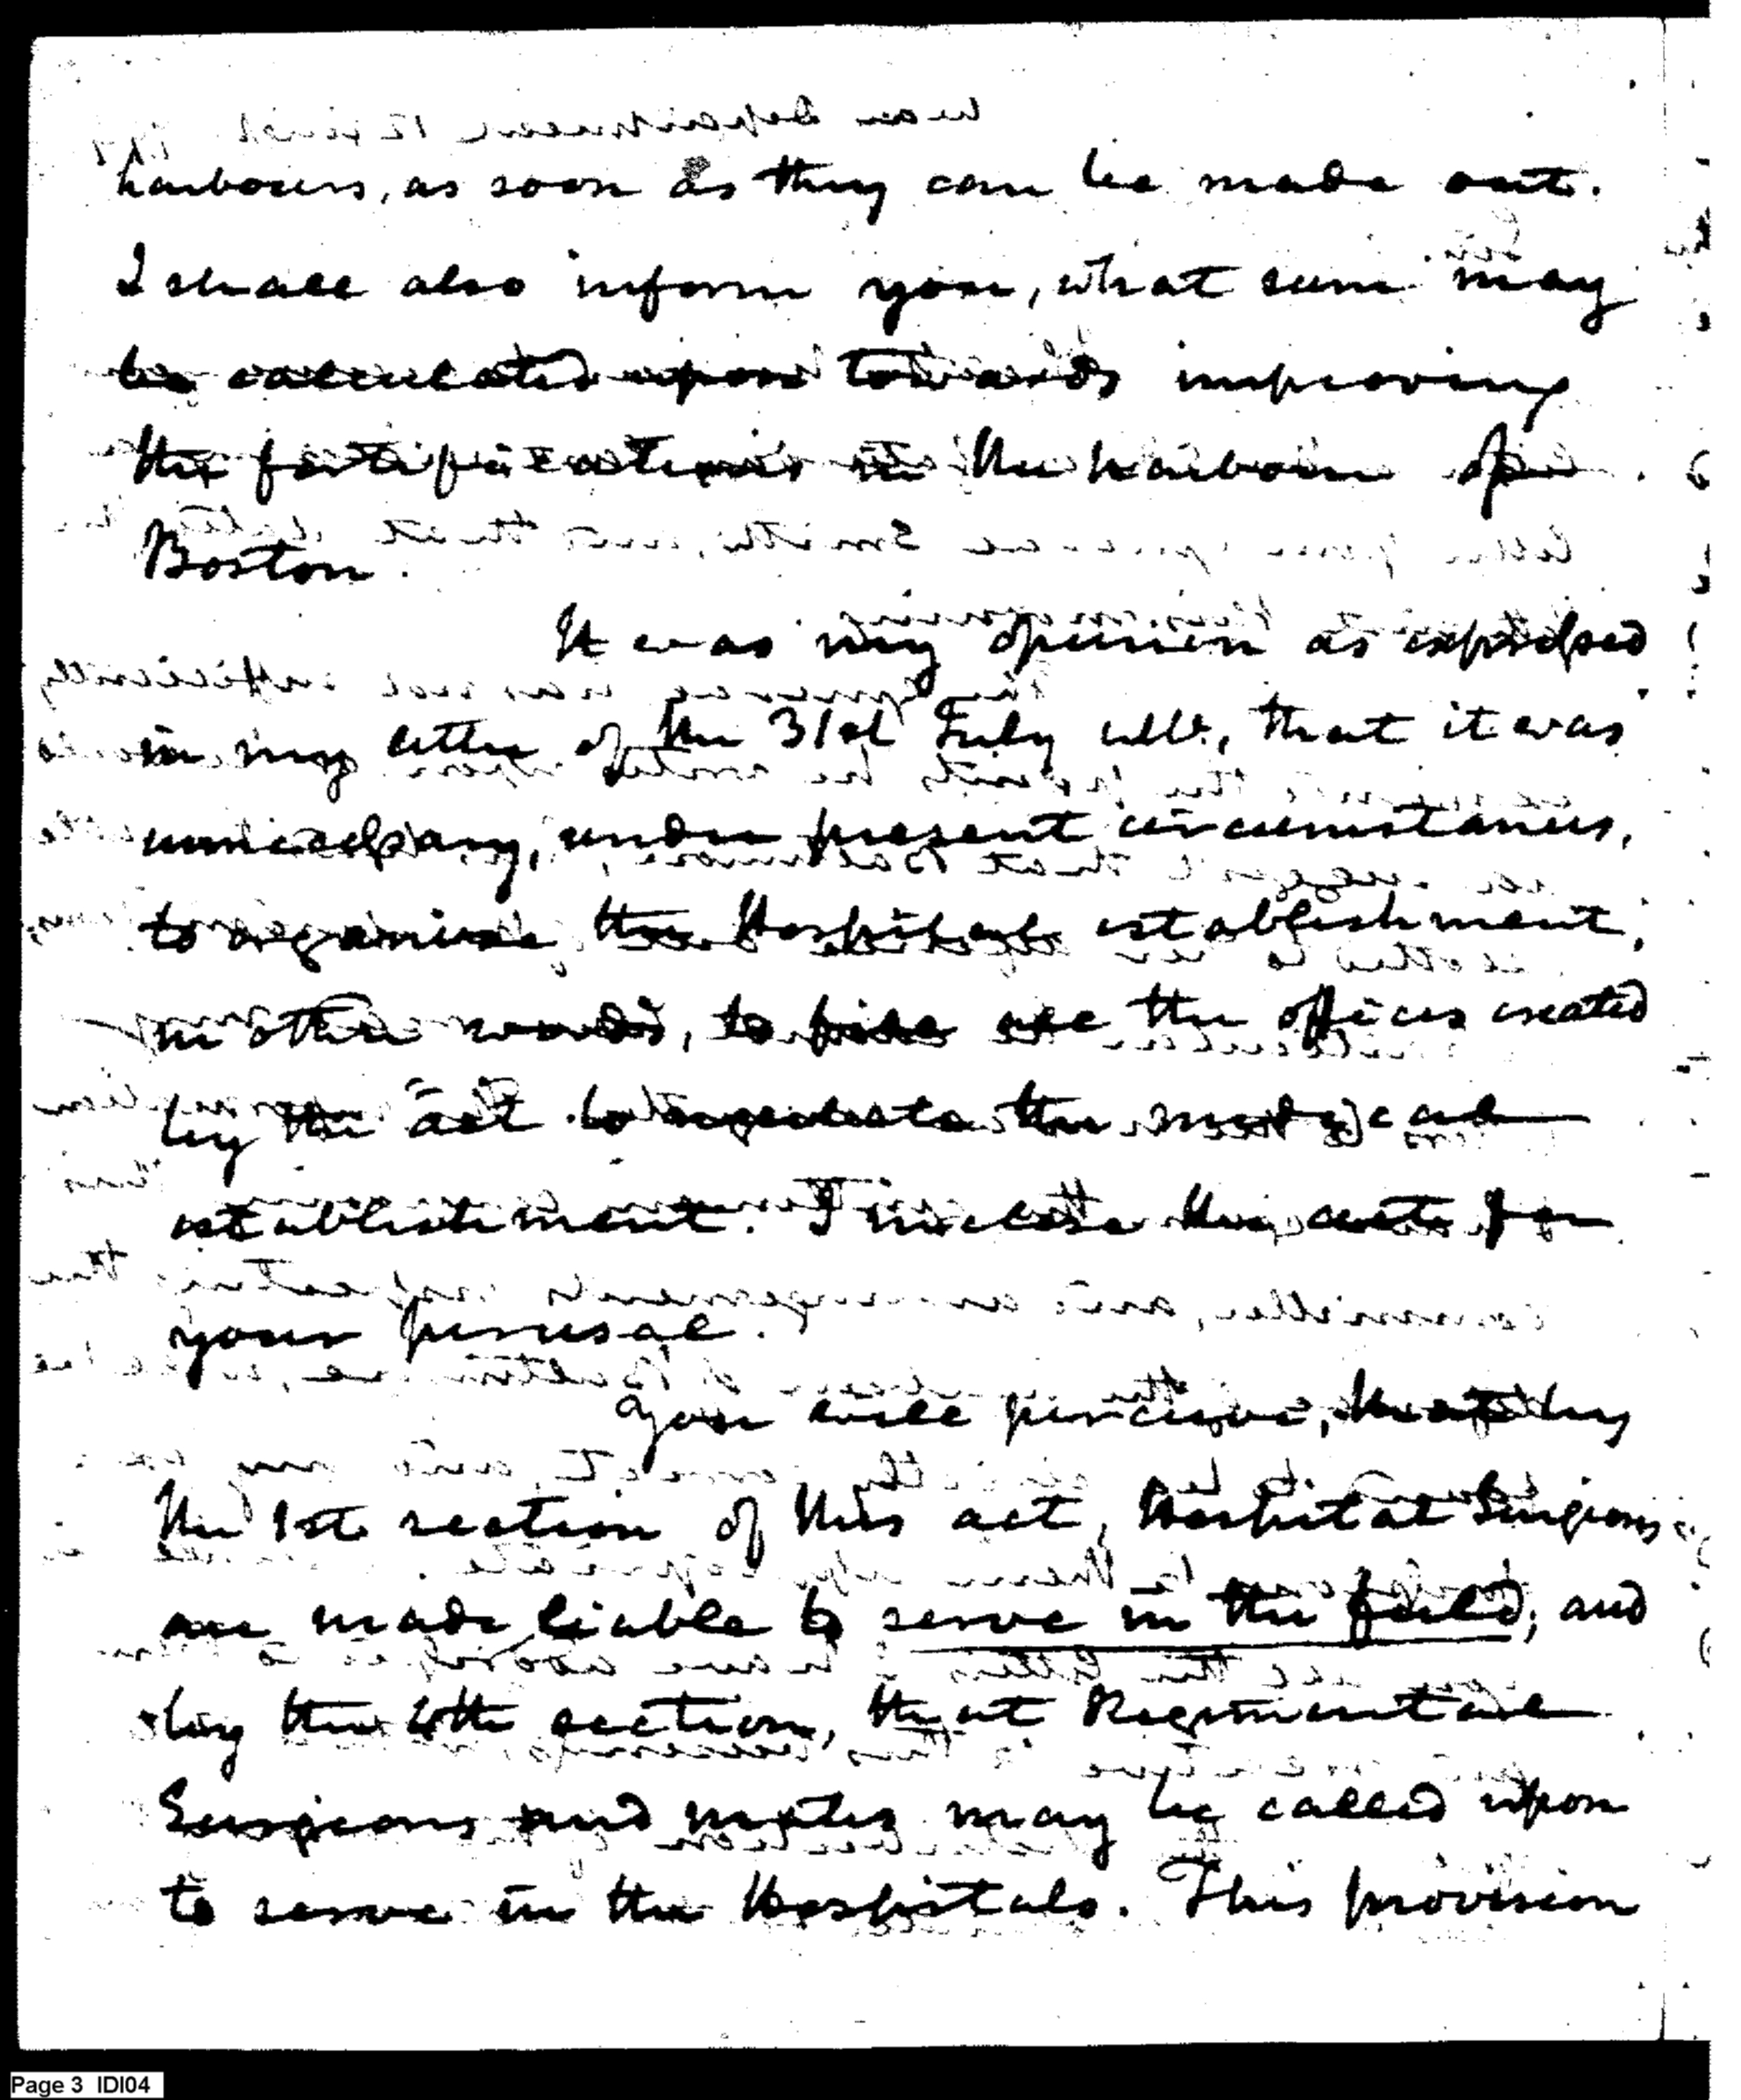 harbours, as soon as they can be made out.
I shall also inform you, what sum may
be calculated upon towards improving
the fortifications in the harbour of
Boston.
It was my opinion as expressed
in my letter of the 31st July ulto, that it was
unnecessary, under present circumstances,
to organize the Hospital establishment,
in other words, to fill all the offices created
by the act to regulate the medical
establishment. I inclose this act for
your perusal.
You will perceive, that by
the 1st section of this act, Hospital Surgeons
are made liable to serve in the field; and
by the 4th section, that Regimental
Surgeons and mates may be called upon
to serve in the Hospitals. This provision
Page 3 IDI04